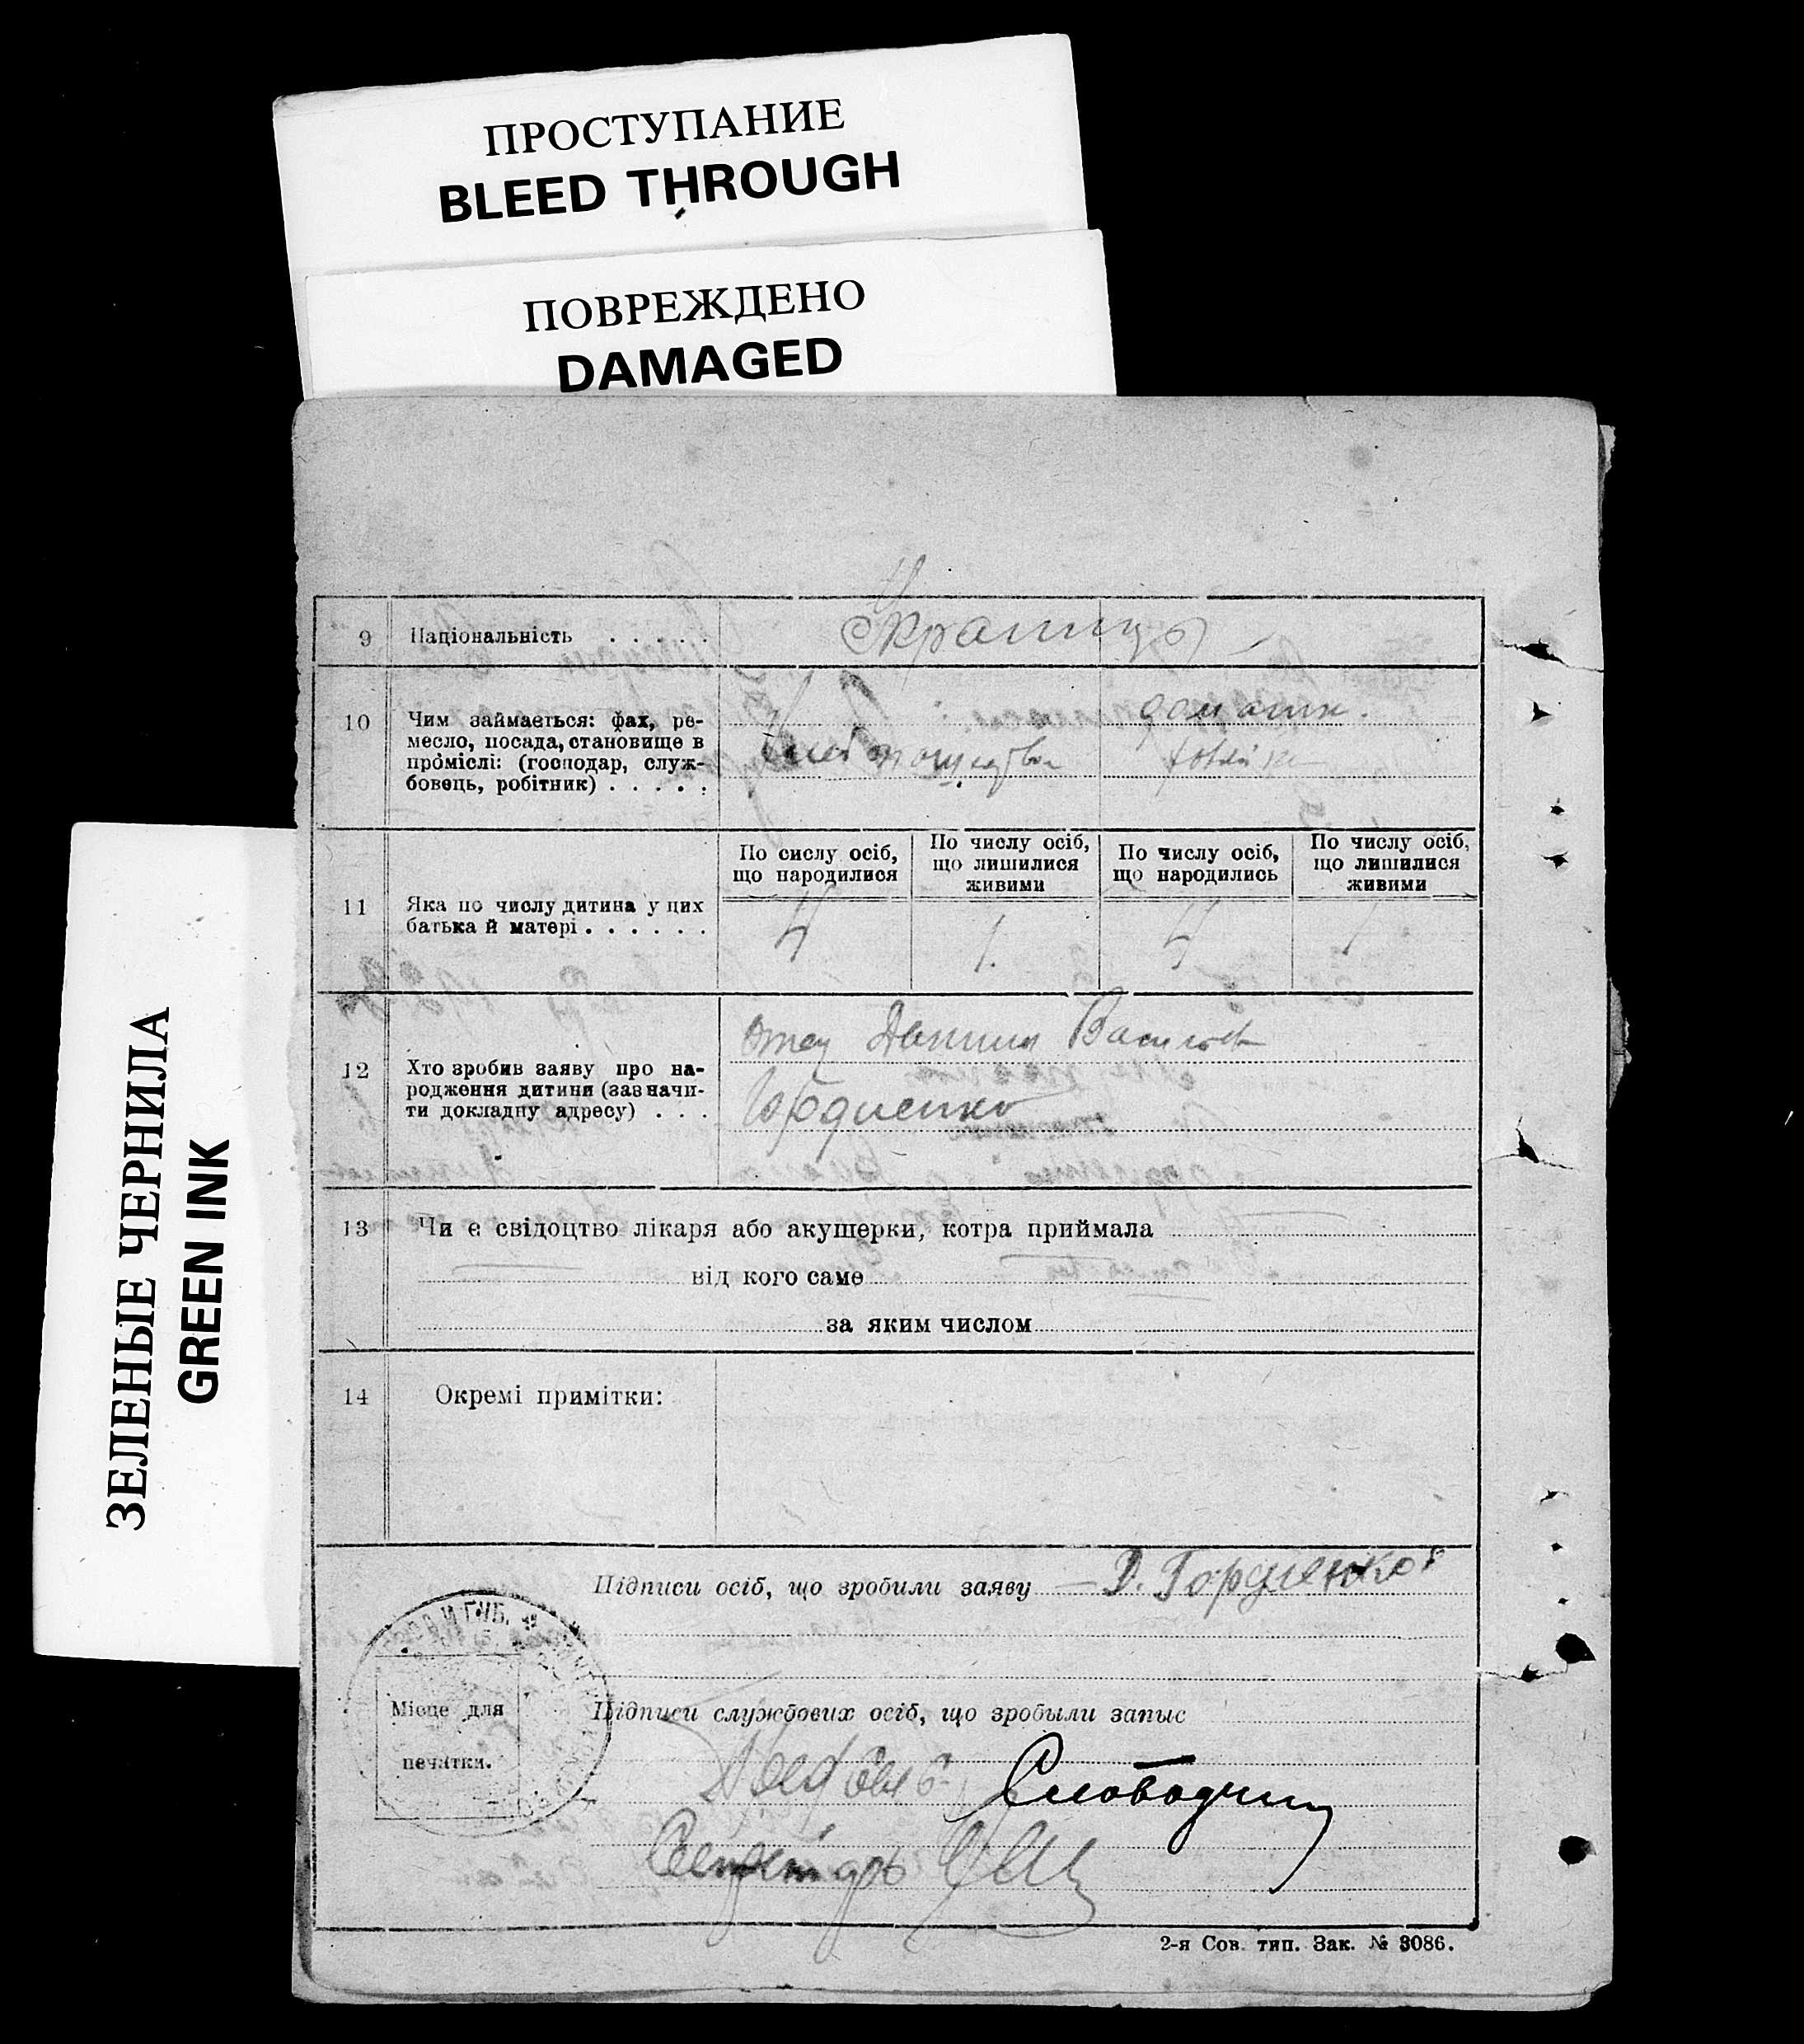 ПРОСТУПАНИЕ
BLEED THROUGH
ПОВРЕЖДЕНО
DAMAGED
ЗЕЛЕНЫЕ ЧЕРНИЛА
GREEN INK
9 Національність . . . . .
Украинцы
10 Чим займається: фах, ре-
месло, посада, становище в
проміслі: (господар, служ-
бовець, робітник) . . . . .
Хлебопашество
домашн.
11 Яка по числу дитина у цих
батька й матері . . . . . .
По сислу осіб,
що народилися
По числу осіб,
що лишилися
живими
По числу осіб,
що народились
По числу осіб,
що лишилися
живими
4 1. 4 1
12 Хто зробив заяву про на-
родження дитини (зазначи-
ти докладну адресу) . . .
Отец Даниил Васильев
Гордиенко
13 Чи є свідоцтво лікаря або акушерки, котра приймала
від кого саме
за яким числом
14 Окремі примітки:
Підписи осіб, що зробили заяву
Д. Гордиенко
Місце для
печатки.
Підписи службових осіб, що зробыли запыс
Секретарь
2-я Сов. тип. Зак. № 3086.